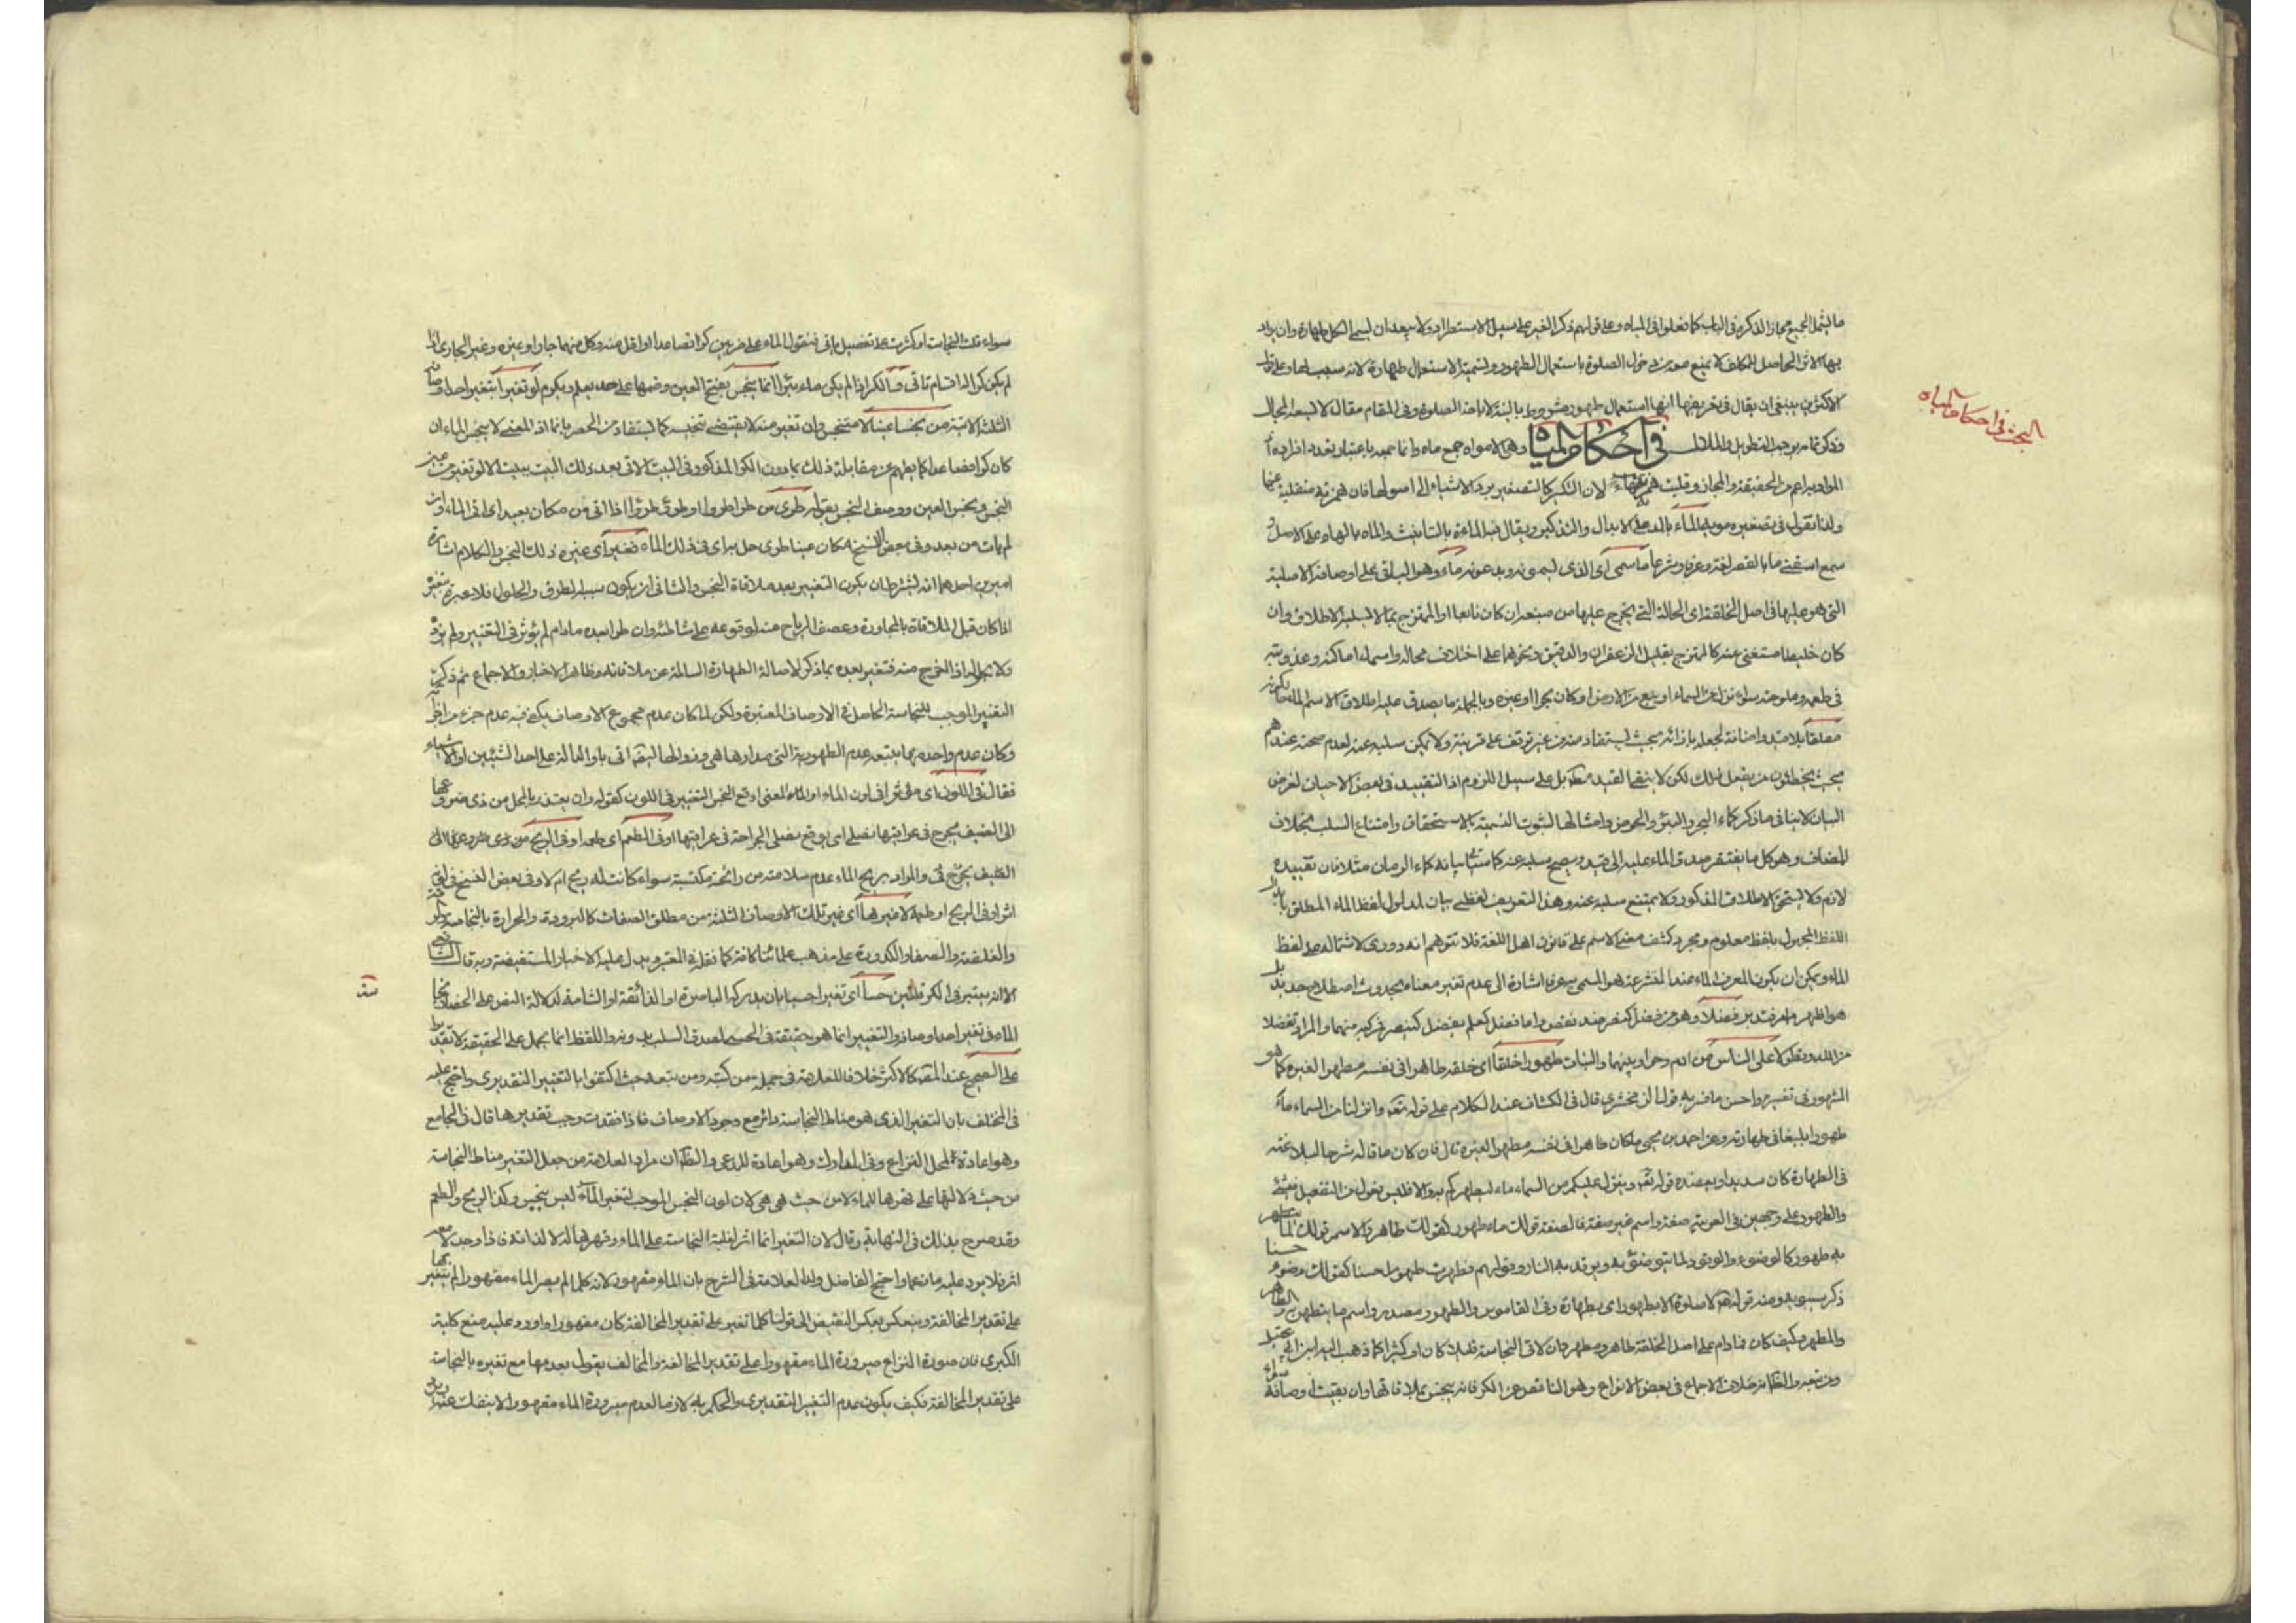 البحث في احكام المياه
ما يشمل الجميع مجازا لذكره في الباب كما فعلوا في المياه وعلى قولهم ذكر الغير على سبيل الاستطراد ولا يبعد ان يسمى الكل طهارة وان يراد
بها الاثر الحاصل للمكلف لا يمنع صورت دخول الصلوة باستعمال الطهور وتسمية الاستعمال طهارة لانه سبب لها وعلى قول
الاكثرين ينبغي ان يقال في تعريفها انها استعمال طهور مشروط بالنية لاباحة الصلوة وفي المقام مقال لا يسعه المجال
وذكر تمامه يوجب التطويل والملال في احكام المياه وهي الامواه جمع ماه وانما جمعه باعتبار تعدد افراده اذ
المراد به اعم من الحقيقة والمجاز وقلبت همزته هاء لان التكسير كالتصغير يرد الاشياء الى اصولها فان همزته منقلبة عنها
ولذا نقول في تصغيره مويه الماء بالمد على الابدال والتذكير ويقال فيه الماءة بالتانيث والماه بالهاء على الاصل و
سمع اسقني ما بالقصر لغة وعرفا وشرعا ما سمي اى الذى يسمونه ويدعونه ماء وهو الباقي على اوصافه الاصلية
التي هو عليها في اصل الخلقة اى الحالة التي يخرج عليها من منبعه ان كان نابعا او الممتزج بما لا يسلبه الاطلاق وان
كان خليطا مستغنى عنه كالممتزج بقليل الزعفران والدقيق ونحوهما على اختلاف محاله واسمائه اما كدر وعذوبته
في طعمه وملوحته سواء نزل من السماء او نبع من الارض او كان بحرا او غيره وبالجملة ما يصدق عليه اطلاق الاسم الماء
مطلقا بلا قيد واضافة لجعله بازائه بحيث يستفاد منه من غير توقف على قرينة ولا يمكن سلبه عنه لعدم صحته عندهم
بحيث يخطئون من يفعل ذلك لكن لا ينتفي القيد بل على سبيل اللزوم اذ التقييد في بعض الاحيان لغرض
البيان لا ينافي ما ذكر كماء البحر والبئر والحوض وامثالها لثبوت التسمية بالاستحقاق وامتناع السلب بخلاف
المضاف وهو كل ما يفتقر صدق الماء عليه الى قيد ويصح سلبه عنه كما سيأتي بيانه كماء الرمان مثلا فان تقييده
لازم ولا يستحق الاطلاق المذكور ولا يمتنع سلبه عنه وهذا التعريف لفظي بيان لمدلول لفظ الماء المطلق
اللفظ المجهول بلفظ معلوم ومجرد كشف معنى الاسم على قانون اهل اللغة فلا تتوهم انه دورى لاشتماله على لفظ
الماء ويمكن ان يكون المعرف الماء عند المتشرعة هو المسمى به عرفا اشارة الى عدم تغير معناه بحدوث اصطلاح جديد بل
هو اظهر فضلا وهو من فضل كنصر ضد نقص واما فضل كعلم يفضل كينصر فمركبة منهما والمراد تفضلا
من الله وتطولا على الناس من ادم وحوا وبنيهما والنبات طهورا خلقا اى خلقه طاهرا في نفسه مطهرا لغيره كما هو
المشهور في تفسيره واحسن ما فسر به قول الزمخشرى قال في الكشاف عند الكلام على قوله تعه وانزلنا من السماء ماء
طهورا بليغا في طهارته وعن احمد بن يحيى ما كان طاهرا في نفسه مطهرا لغيره قال فان كان ما قاله شرحا لبلاغته
في الطهارة كان سديدا ويعضده قوله تعه وينزل عليكم من السماء ماء ليطهركم به والا فليس فعول من التفعيل في شئ
والطهور على وجهين في العربية صفة واسم غير صفة فالصفة قولك ماء طهور كقولك طاهر والاسم قولك لما يتطهر
به طهور كالوضوء والوقود لما يتوضؤ به ويوقد به النار وقولهم تطهرت طهورا حسنا كقولك وضوء حسنا
ذكر سيبويه ومنه قوله لا صلوة الا بطهور اى بطهارة وفي القاموس والطهور مصدر واسم ما يتطهر به والطاهر
والمطهر وكيف كان فما دام على اصل الخلقة طاهر ومطهر وان لاقى النجاسة قليلا كان او كثيرا كما ذهب اليه ابن ابي عقيل
ومن تبعه والظ انه خلاف الاجماع في بعض الانواع وهو الناقص عن الكر فانه ينجس بملاقاتها وان بقيت اوصافه
سواء قلت النجاسة او كثرت على تفصيل ياتي فنقول الماء على ضربين كر فصاعدا او اقل منه وكل منهما جار او غيره وغير الجارى اذا
لم يكن كرا له اقسام تاتي فالكر اذا لم يكن ماء بئر انما ينجس بفتح العين وضمها على حد يعلم ويكرم لو تغيرا بتغير احد اوصافه
الثلثة الاتية من نجس عينا لا متنجس وان تغير منه لا يقتضي تنجيسه كما يستفاد من الحصر بانما اذ المعنى لا ينجس الماء ان
كان كرا فصاعدا كما يفهم من مقابلة ذلك بما دون الكر المذكور في البيت الاتي بعد ذلك البيت ببيت الا لو تغير من عين
النجس ونجس العين ووصف النجس بقوله طرى من طرا طروا او طرؤ طروءا اذا اتى من مكان بعيد اى اتى الماء وان
لم يات من بعد وفي بعض النسخ مكان عينا طرى حل براى في ذلك الماء فغيرا اى غيره ذلك النجس والكلام اشارة
امرين احدهما انه يشترط ان يكون التغيير بعد ملاقاة النجس والثاني ان يكون سببه الطرو والحلول فلا عبرة بتغيره
اذا كان قبل الملاقاة بالمجاورة وعصف الرياح منه لوقوعه على شاطئه وان طرا بعده ما دام لم يؤثر في التغيير ولم يزد
ولا اذا اخرج منه فتغير بعده بما ذكر لاصالة الطهارة السالمة عن ملاقاته وظاهر الاخبار والاجماع ثم ذكر
التغيير الموجب للنجاسة الحاصل في الاوصاف المعتبرة ولكن لما كان عدم مجموع الاوصاف يكفي فيه عدم جزء من اجزائه
وكان عدم واحد منها يتبعه عدم الطهورية التي مدارها هي وزوالها اتى باو الدالة على احد الشيئين او الاشياء
فقال في اللون اى مؤثرا في لون الماء او المعنى اوقع النجس التغيير في اللون كقوله وان يعتذر بالمحل من ذى ضروعها
الى الضيف يجرح في عراقيبها نصلى اى يوقع نصلى الجراحة في عراقيبها او في الطعم اى طعمه او في الريح من ذى ضروعها الى
الضيف يجرح في والمراد بريح الماء عدم سلامته من رائحة مكتسبة سواء كانت له ريح ام لا وفي بعض النسخ في لونه
اثر او في الريح او طعمه لا غيرها اى غير تلك الاوصاف الثلثة من مطلق الصفات كالبرودة والحرارة بالنجاسة
والغلظة والصفا والكدورة على مذهب علمائنا كافة كما نقله في المعتبر ويدل عليه الاخبار المستفيضة وبه قال الشافعي
الا انه يعتبر في الكر قلتين حسا اى تغيرا حسيا بان يدركه الباصرة او الذائقة او الشامة لدلالة النص على انحصار نجاسة
الماء في تغير احد اوصافه والتغيير انما هو حقيقة في الحسي لصدق السلب بدونه واللفظ انما يحمل على الحقيقة لا تقديرا
على الصحيح عند المصه كالاكثر خلافا للعلامة في جملة من كتبه ومن تبعه حيث اكتفوا بالتغيير التقديرى واحتج عليه
في المختلف بان التغير الذى هو مناط النجاسة دائر مع وجود الاوصاف فاذا فقدت وجب تقديرها قال في الجامع
وهو اعادة لمحل النزاع وفي المدارك وهو اعادة للمدعى والظ ان مراد العلامة من جعل التغير مناط النجاسة
من حيث دلالتها على قهرها للماء لا من حيث هي هي لان لون النجس الموجب لتغير الماء ليس بنجس وكذا الريح والطعم
وقد صرح بذلك في النهاية وقال لان التغير انما اثر لغلبة النجاسة على الماء وقهرها له لا لذاته فاذا وجد لا معه
اثر فلا يرد عليه ما قالوا واحتج الفاضل ولد العلامة في الشرح بان الماء مقهور لانه كلما لم يصر الماء مقهورا لم يتغير بها
على تقدير المخالفة وينعكس بعكس النقيض الى قولنا كلما تغير على تقدير المخالفة كان مقهورا واورد عليه منع كلية
الكبرى فان صورة النزاع صيرورة الماء مقهورا على تقدير المخالفة والمخالف يقول بعدمها مع تغيره بالنجاسة
على تقدير المخالفة فكيف يكون عدم التغير التقديرى والحكم به لازما لعدم صيرورة الماء مقهورا لا ينفك عنه